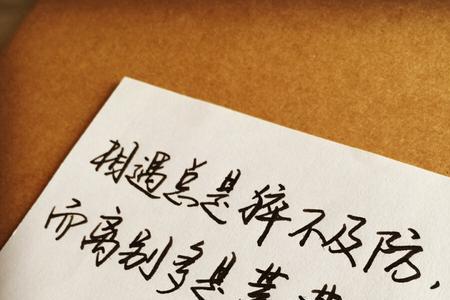 相遇总是猝不及防，
而离别多是